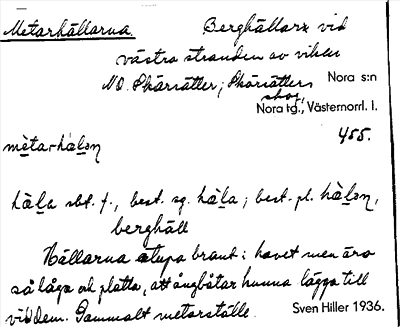 Metarhällarna. Berghällar vid
västra stranden av viken
NO. Skärsätter, Skärsätters Nora s:n
skog, Nora tg., Västernorrl. l.
455.
mètar-hàlạn
hàla sbt. f., best. sg. hàla; best. pl. hàlan,
berghäll
Hällarna stupa brant i havet men äro
så låga och platta, att ångbåtar kunna lägga till
vid dem. Gammalt metarställe. Sven Hiller 1936.